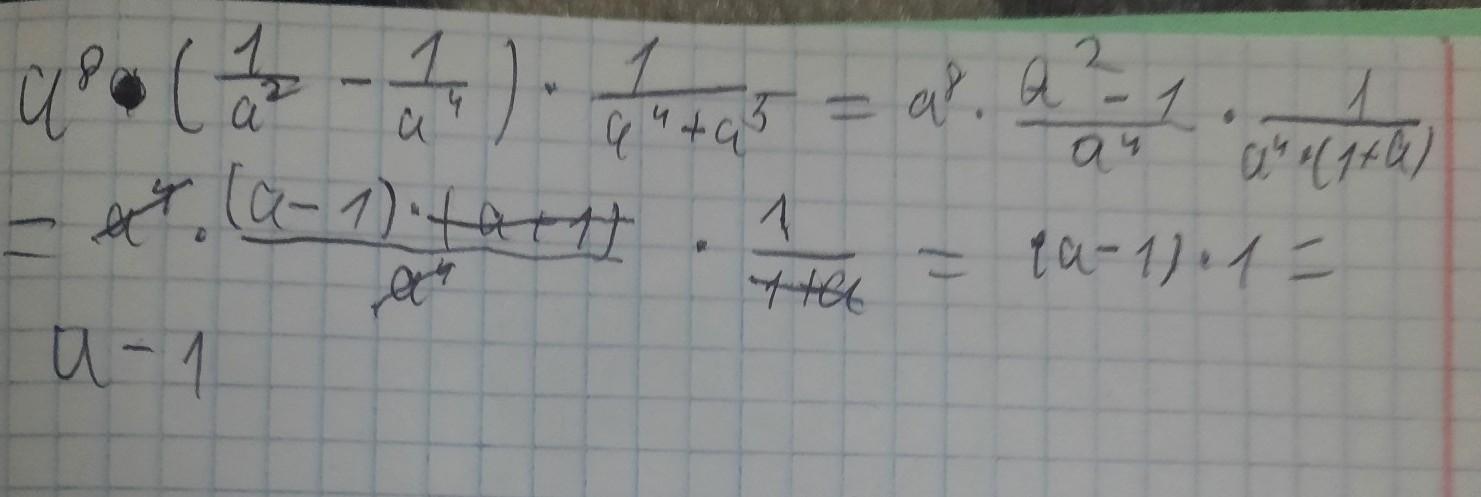 a⁸ · (1/a² - 1/a⁴) · 1/(a⁴+a⁵) = a⁸ · (a²-1)/a⁴ · 1/(a⁴·(1+a))
= a⁴ · (a-1)·(a+1)/a⁴ · 1/(1+a) = (a-1)·1 =
a-1